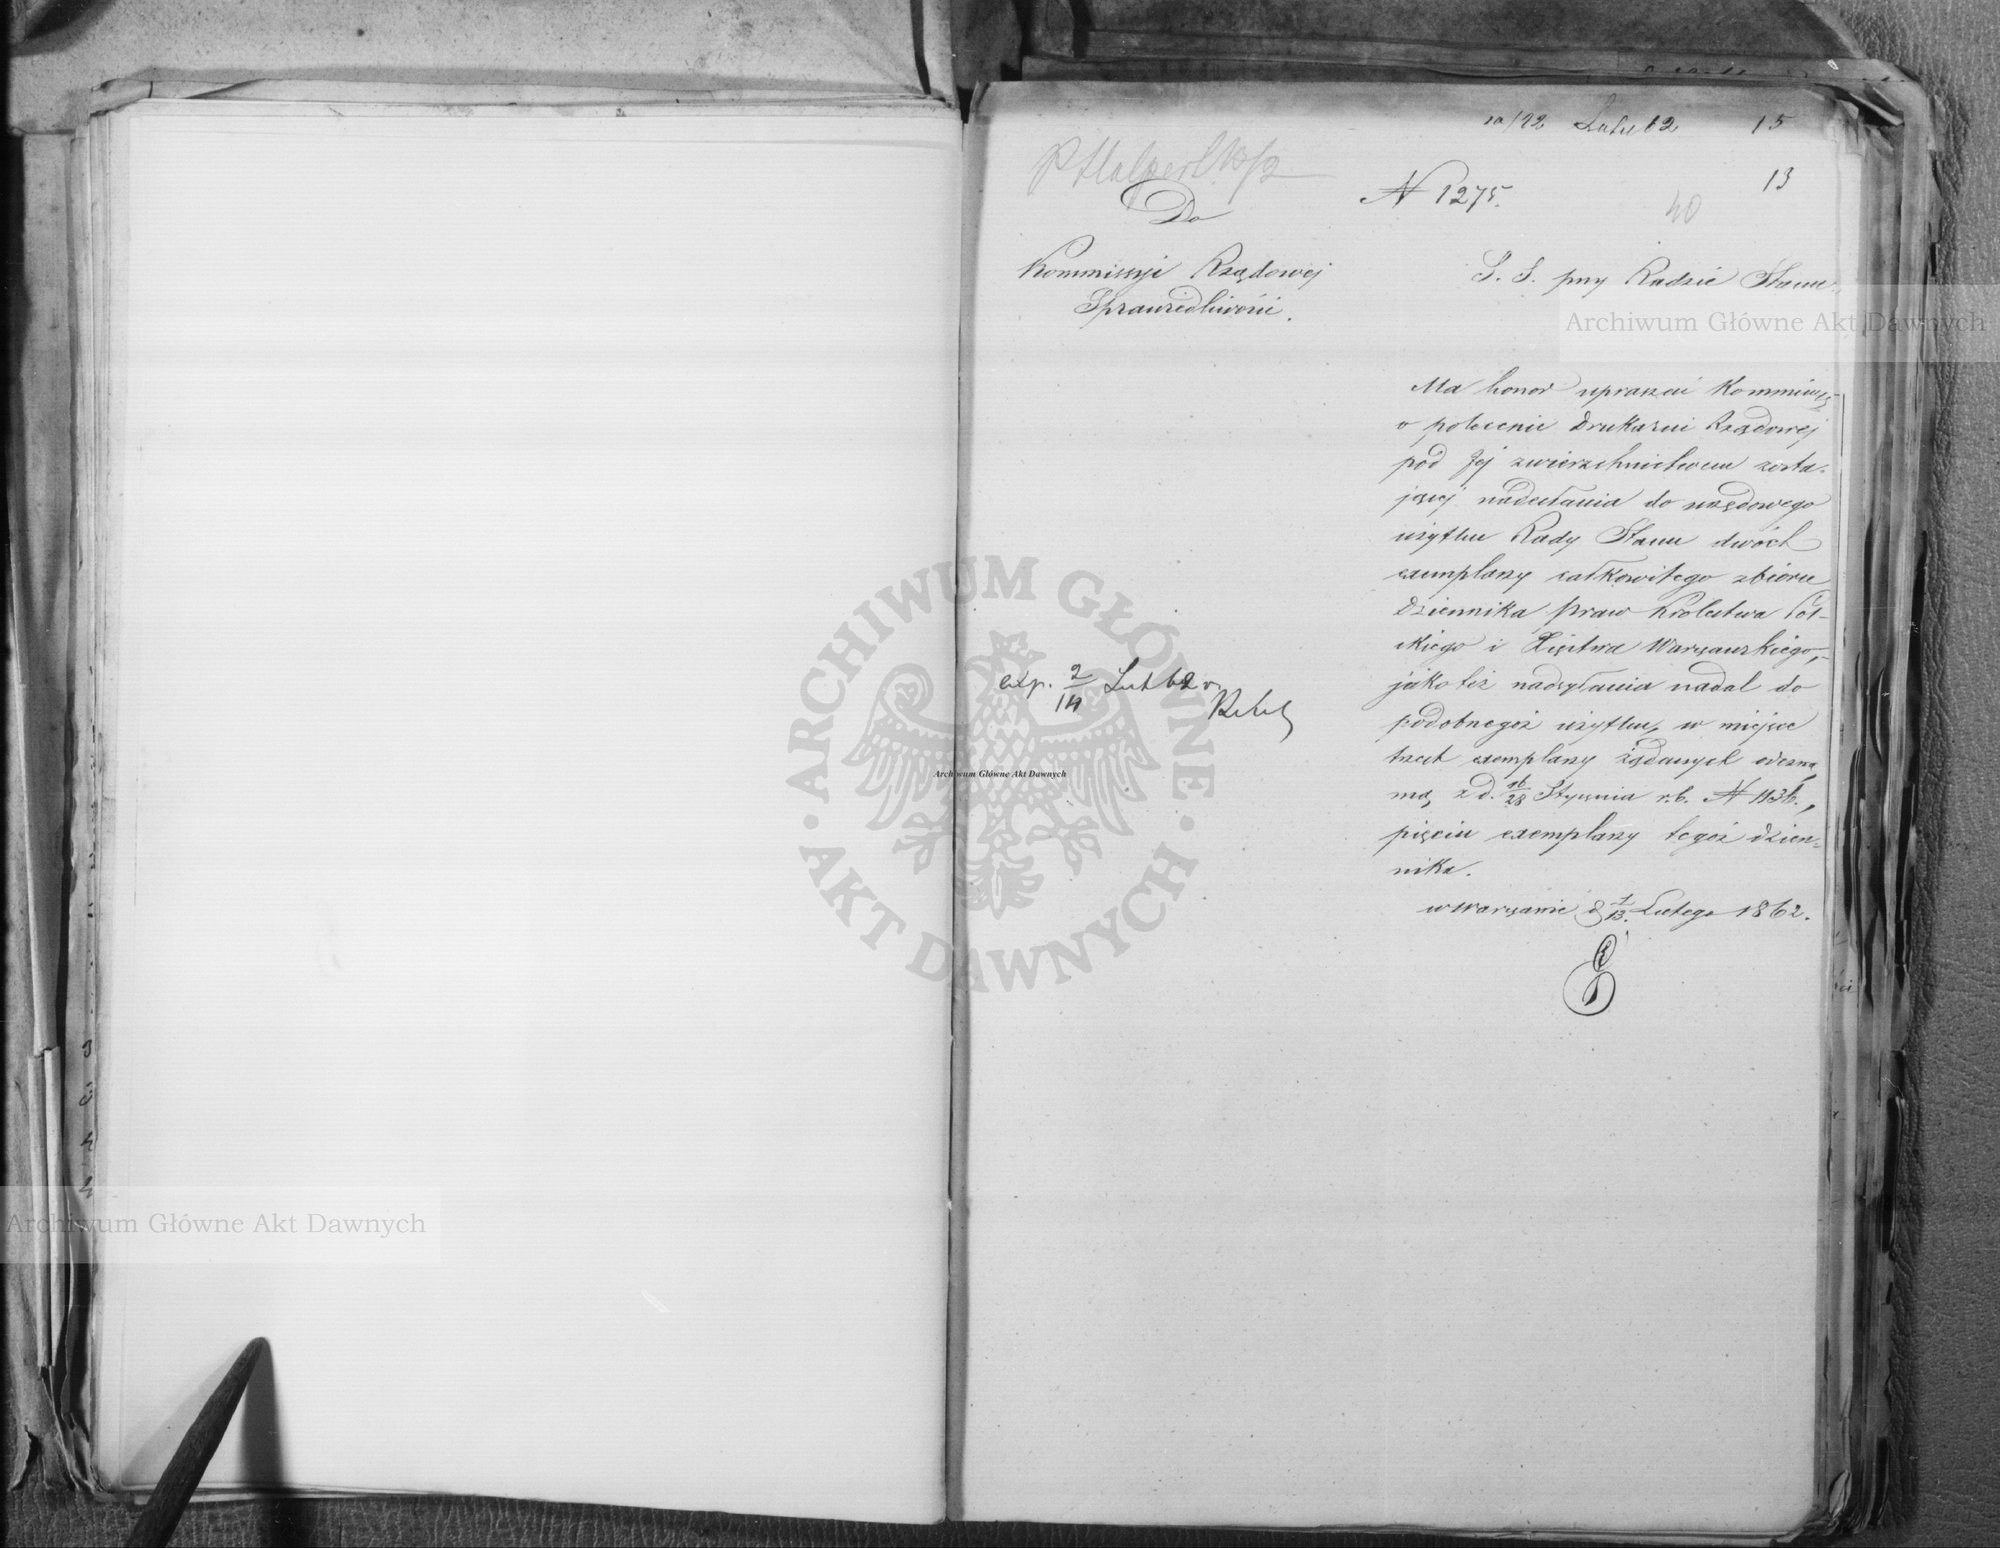 10/22 Luty 62 15
13
N 1275.
40
Do
Kommissyi Rządowej
Sprawiedliwości.
S. S. przy Radzie Stanu
Ma honor upraszać Kommissyą
o polecenie Drukarni Rządowej
pod Jej zwierzchnictwem zosta-
jącej nadesłania do urzędowego
użytku Rady Stanu dwóch
exemplarzy całkowitego zbioru
Dziennika praw Królestwa Pol-
skiego i Xięstwa Warszawskiego,
jakoteż nadsyłania nadal do
podobnegoż użytku, w miejsce
trzech exemplarzy żądanych odezwą
mą z d. 16/28 Stycznia r.b. N 1136.,
pięciu exemplarzy tegoż dzien-
nika.
w Warszawie d 1/13 Lutego 1862.
exp. 2/14 Lut 62 r.
Archiwum Główne Akt Dawnych
Archiwum Główne Akt Dawnych
Archiwum Główne Akt Dawnych
ARCHIWUM GŁÓWNE · AKT DAWNYCH ·